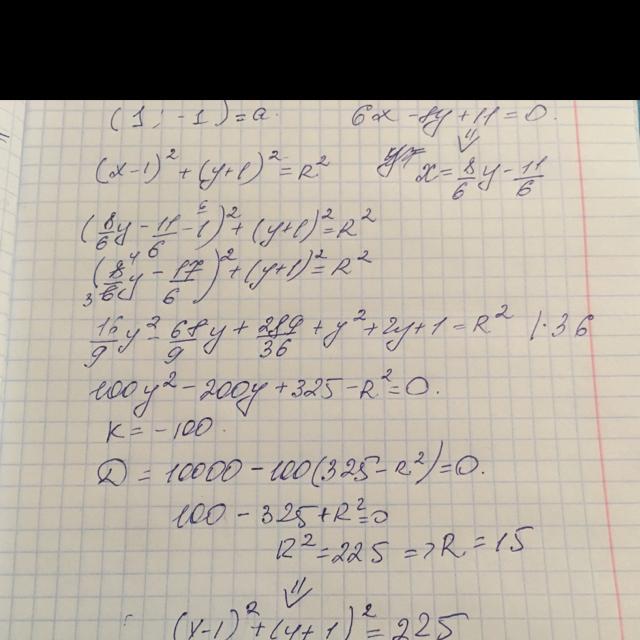 (1; -1) = a. 6x - 8y + 11 = 0.
(x-1)² + (y+1)² = R² x = 8/6 y - 11/6
(8/6 y - 11/6 - 1)² + (y+1)² = R²
(8/6 y - 17/6)² + (y+1)² = R²
16/9 y² - 68/9 y + 289/36 + y² + 2y + 1 = R² | · 36
100y² - 200y + 325 - R² = 0.
K = -100.
D = 10000 - 100(325 - R²) = 0.
100 - 325 + R² = 0
R² = 225 => R = 15
⇓
(x-1)² + (y+1)² = 225